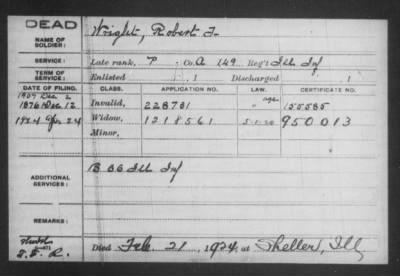 DEAD
NAME OF SOLDIER: Wright, Robert F.
SERVICE: Late rank, P, Co. A 149 Reg't Ill Inf
TERM OF SERVICE: Enlisted , 1 Discharged , 1
DATE OF FILING. CLASS. APPLICATION NO. LAW. CERTIFICATE NO.
1907 Dec 2 age
1876 Dec 12 Invalid, 228781 155585
1924 Apr 24 Widow, 1218561 5-1-20 950013
Minor,
ADDITIONAL SERVICES: B 66 Ill Inf
REMARKS:
S. E. R. Died Feb. 21, 1924, at Sheller, Ill